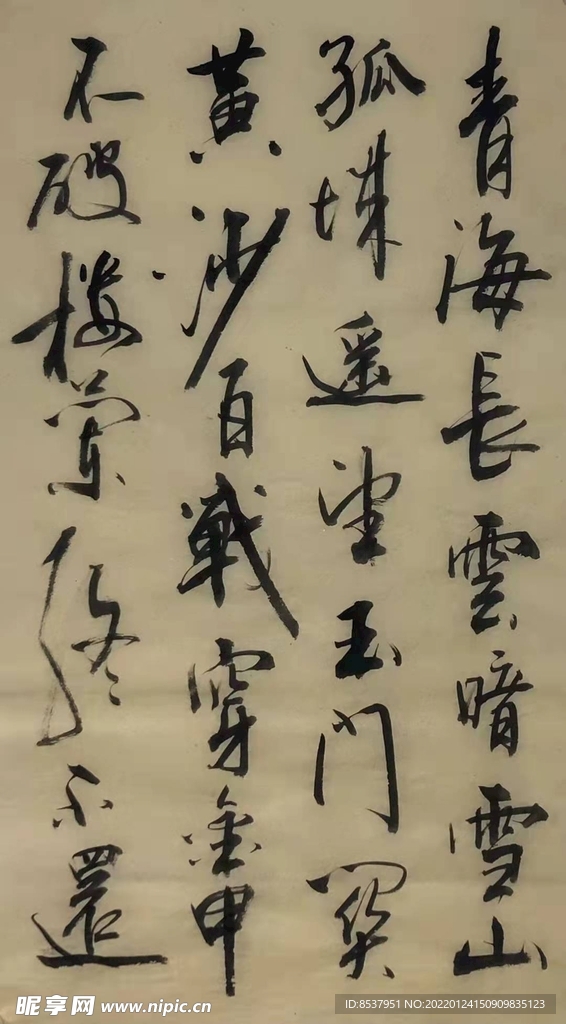 青海長雲暗雪山
孤城遥望玉門関
黄沙百戰穿金甲
不破楼蘭終不還
昵享网 www.nipic.cn
ID:8537951 NO:20220124150909835123